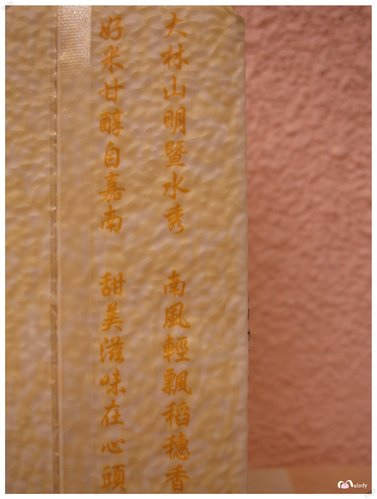 大林山明暨水秀 南風輕飄稻穗香
好米甘醇自嘉南 甜美滋味在心頭
Melody